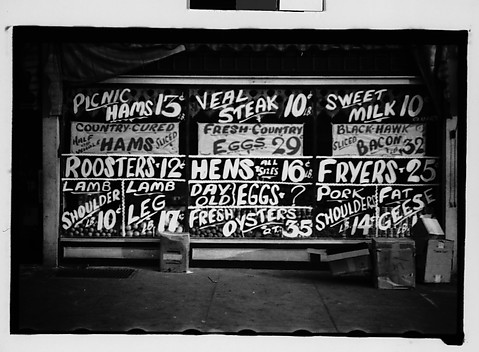 PICNIC HAMS 13
VEAL STEAK 10¢ LB
SWEET MILK 10
COUNTRY-CURED
HALF HAMS SLICED
FRESH-COUNTRY
EGGS 29
BLACK-HAWK
SLICED BACON 32
ROOSTERS-12¢
HENS ALL SIZES 16¢ LB
FRYERS-25
LAMB SHOULDER LB. 10¢
LAMB LEG LB. 17¢
DAY OLD EGGS-?
FRESH OYSTERS 35
PORK SHOULDERS LB. 14¢
FAT GEESE